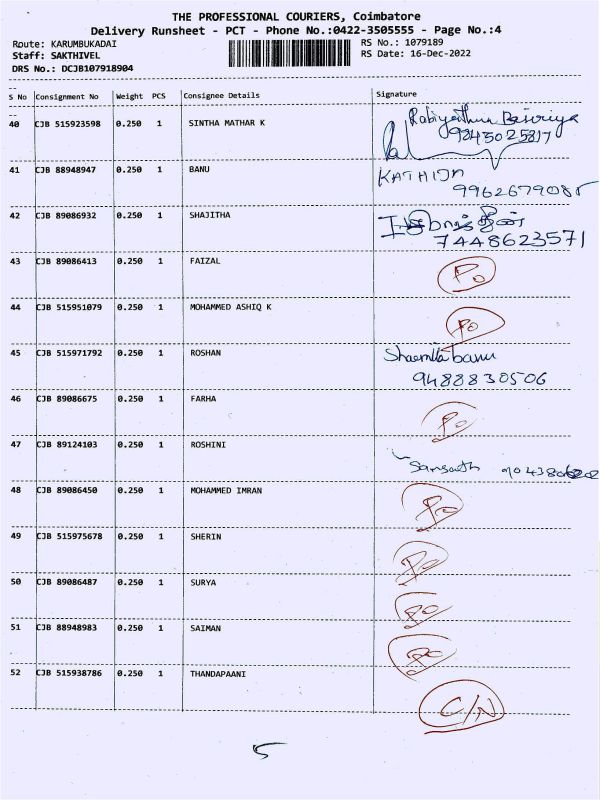 THE PROFESSIONAL COURIERS, Coimbatore
Delivery Runsheet - PCT - Phone No.:0422-3505555 - Page No.:4
Route: KARUMBUKADAI RS No.: 1079189
Staff: SAKTHIVEL RS Date: 16-Dec-2022
DRS No.: DCJB107918904
S No Consignment No Weight PCS Consignee Details Signature
40 CJB 515923598 0.250 1 SINTHA MATHAR K
9845025817
41 CJB 88948947 0.250 1 BANU KATHIJA
9962679085
42 CJB 89086932 0.250 1 SHAJITHA
7448623571
43 CJB 89086413 0.250 1 FAIZAL Po
44 CJB 515951079 0.250 1 MOHAMMED ASHIQ K Po
45 CJB 515971792 0.250 1 ROSHAN banu
9488830506
46 CJB 89086675 0.250 1 FARHA Po
47 CJB 89124103 0.250 1 ROSHINI
48 CJB 89086450 0.250 1 MOHAMMED IMRAN Po
49 CJB 515975678 0.250 1 SHERIN Po
50 CJB 89086487 0.250 1 SURYA Po
51 CJB 88948983 0.250 1 SAIMAN Po
52 CJB 515938786 0.250 1 THANDAPAANI C/N
5